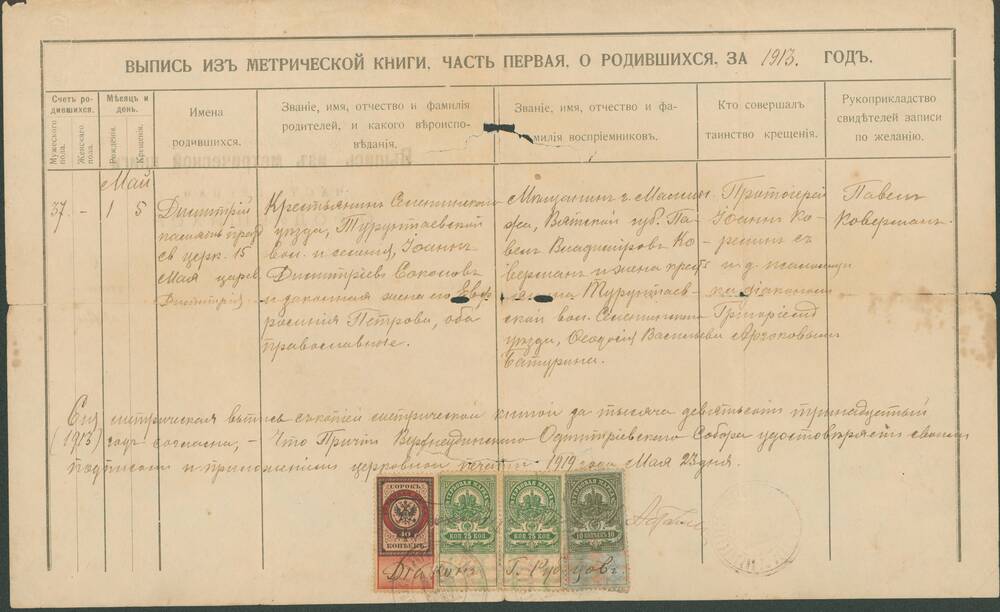 ВЫПИСЬ ИЗЪ МЕТРИЧЕСКОЙ КНИГИ, ЧАСТЬ ПЕРВАЯ, О РОДИВШИХСЯ, ЗА 1913. ГОДЪ.
Счетъ родившихся.
Мужескаго пола.
Женскаго пола.
Мѣсяцъ и день.
Рожденія.
Крещенія.
Имена
родившихся.
Званіе, имя, отчество и фамилія
родителей, и какого вѣроиспо-
вѣданія.
Званіе, имя, отчество и фа-
милія воспріемниковъ.
Кто совершалъ
таинство крещенія.
Рукоприкладство
свидѣтелей записи
по желанію.
Май
37. - 1 5
Димитрій
память
св церк. 15
Мая царев.
Димитрія
Крестьянинъ Селенгинскаго
уѣзда, Турунтаевской
вол. и селенія, Іоаннъ
Димитріевъ Соколовъ
и законная жена его Евф-
росинія Петрова, оба
православные.
Мѣщанинъ г. Малмы-
жа, Вятской губ. Па-
велъ Владиміровъ Ко-
верманъ и жена
Турунтаев-
ской вол. Селенгинскаго
уѣзда, Ѳеодосія Васильева
Батурина.
Протоіерей
Іоаннъ Ко-
ренинъ съ
и. д. псаломщи-
ка діакономъ
Григоріемъ
Павелъ
Коверманъ.
Сія метрическая выпись съ копіей метрической книгой за тысяча девятьсотъ тринадцатый
(1913) годъ согласна, - Что Причтъ Верхнеудинскаго Одигитріевскаго Собора удостовѣряетъ своимъ
подписомъ и приложеніемъ церковной печати 1919 года Мая 23 дня.
СОРОКЪ
40
КОПѢЕКЪ
ГЕРБОВАЯ МАРКА
КОП 75 КОП.
ГЕРБОВАЯ МАРКА
КОП 75 КОП.
ГЕРБОВАЯ МАРКА
10 КОПѢЕКЪ 10
Діаконъ Г. Рубцовъ